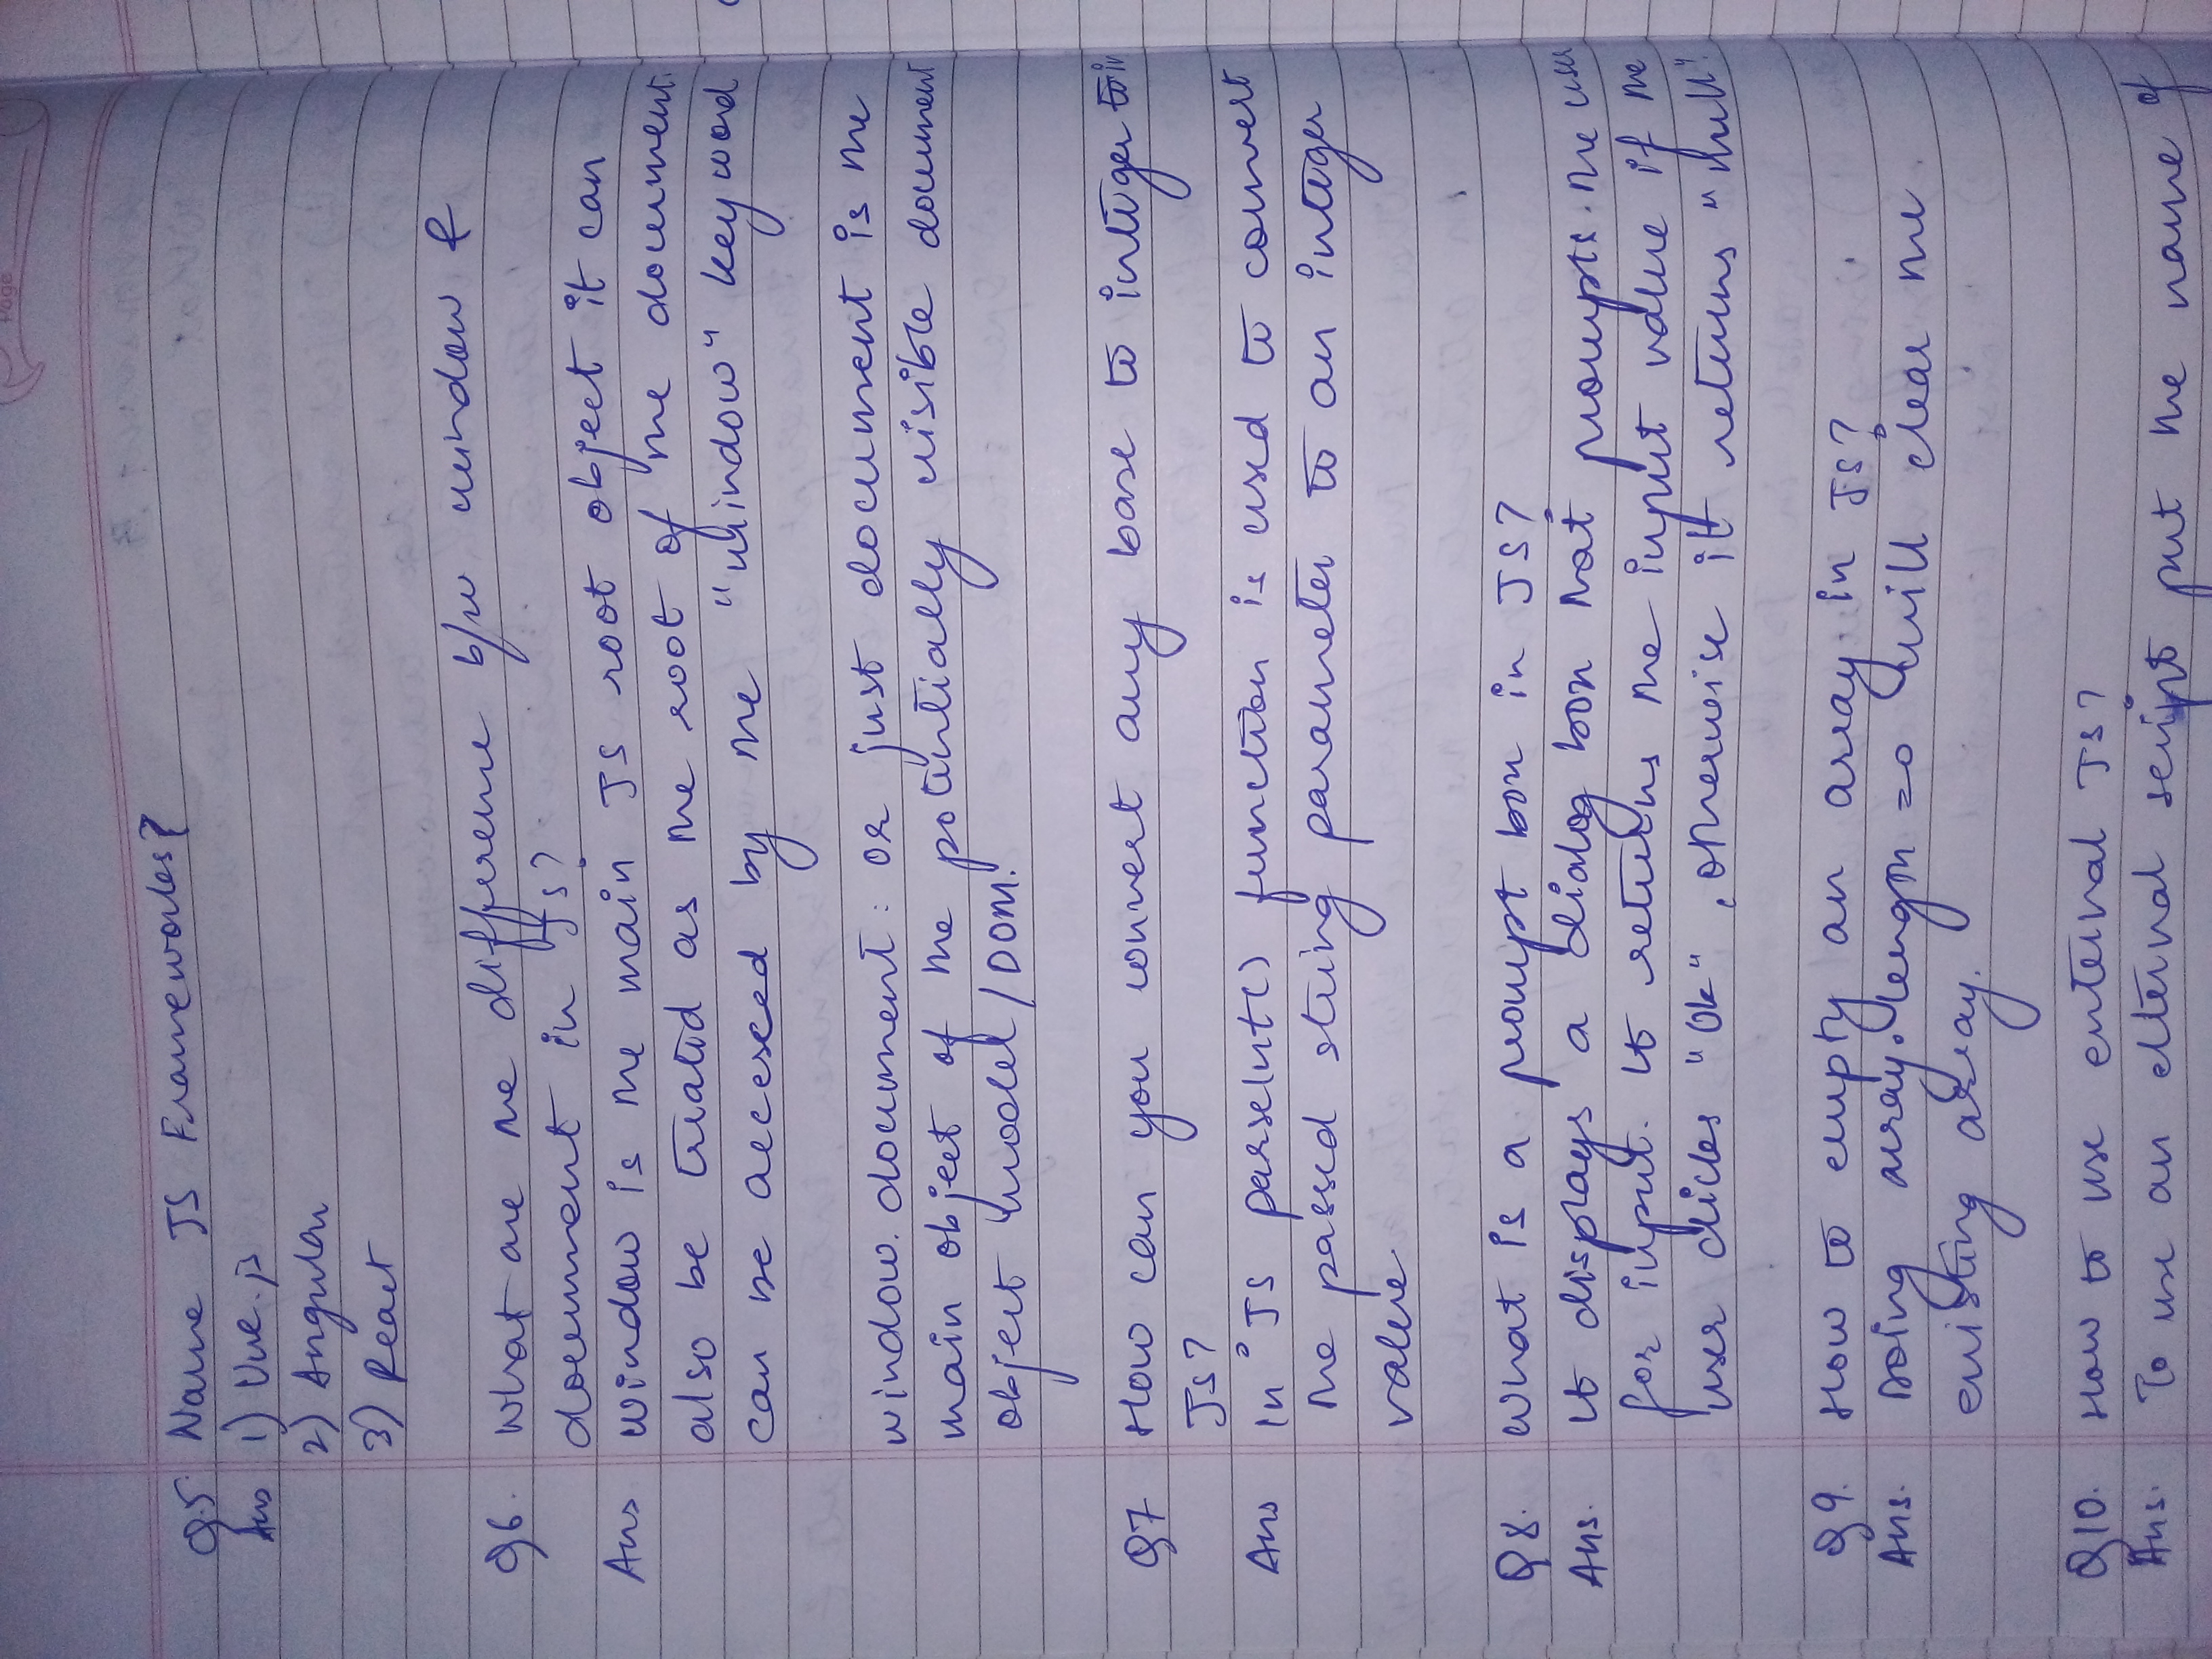 Page
Q.5 Name JS Frameworks?
Ans 1) Vue.js
2) Angular
3) React
Q6. What are the difference b/w window &
document in JS?
Ans window is the main JS root object it can
also be treated as the root of the document.
can be accesced by the "window" keyword
window.document: or just document is the
main object of the potentially visible document
object model/DOM.
Q7 How can you convert any base to integer in
JS?
Ans In JS parseInt() function is used to convert
the passed string parameter to an integer
value.
Q8. What is a prompt box in JS?
Ans. It displays a dialog box that prompts the user
for input. It returns the input value if the
user clicks "Ok", otherwise it returns "null".
Q9. How to empty an array in JS?
Ans. Doing array.length =0 will clear the
existing array.
Q10. How to use external JS?
Ans. To use an elternal script put the name of